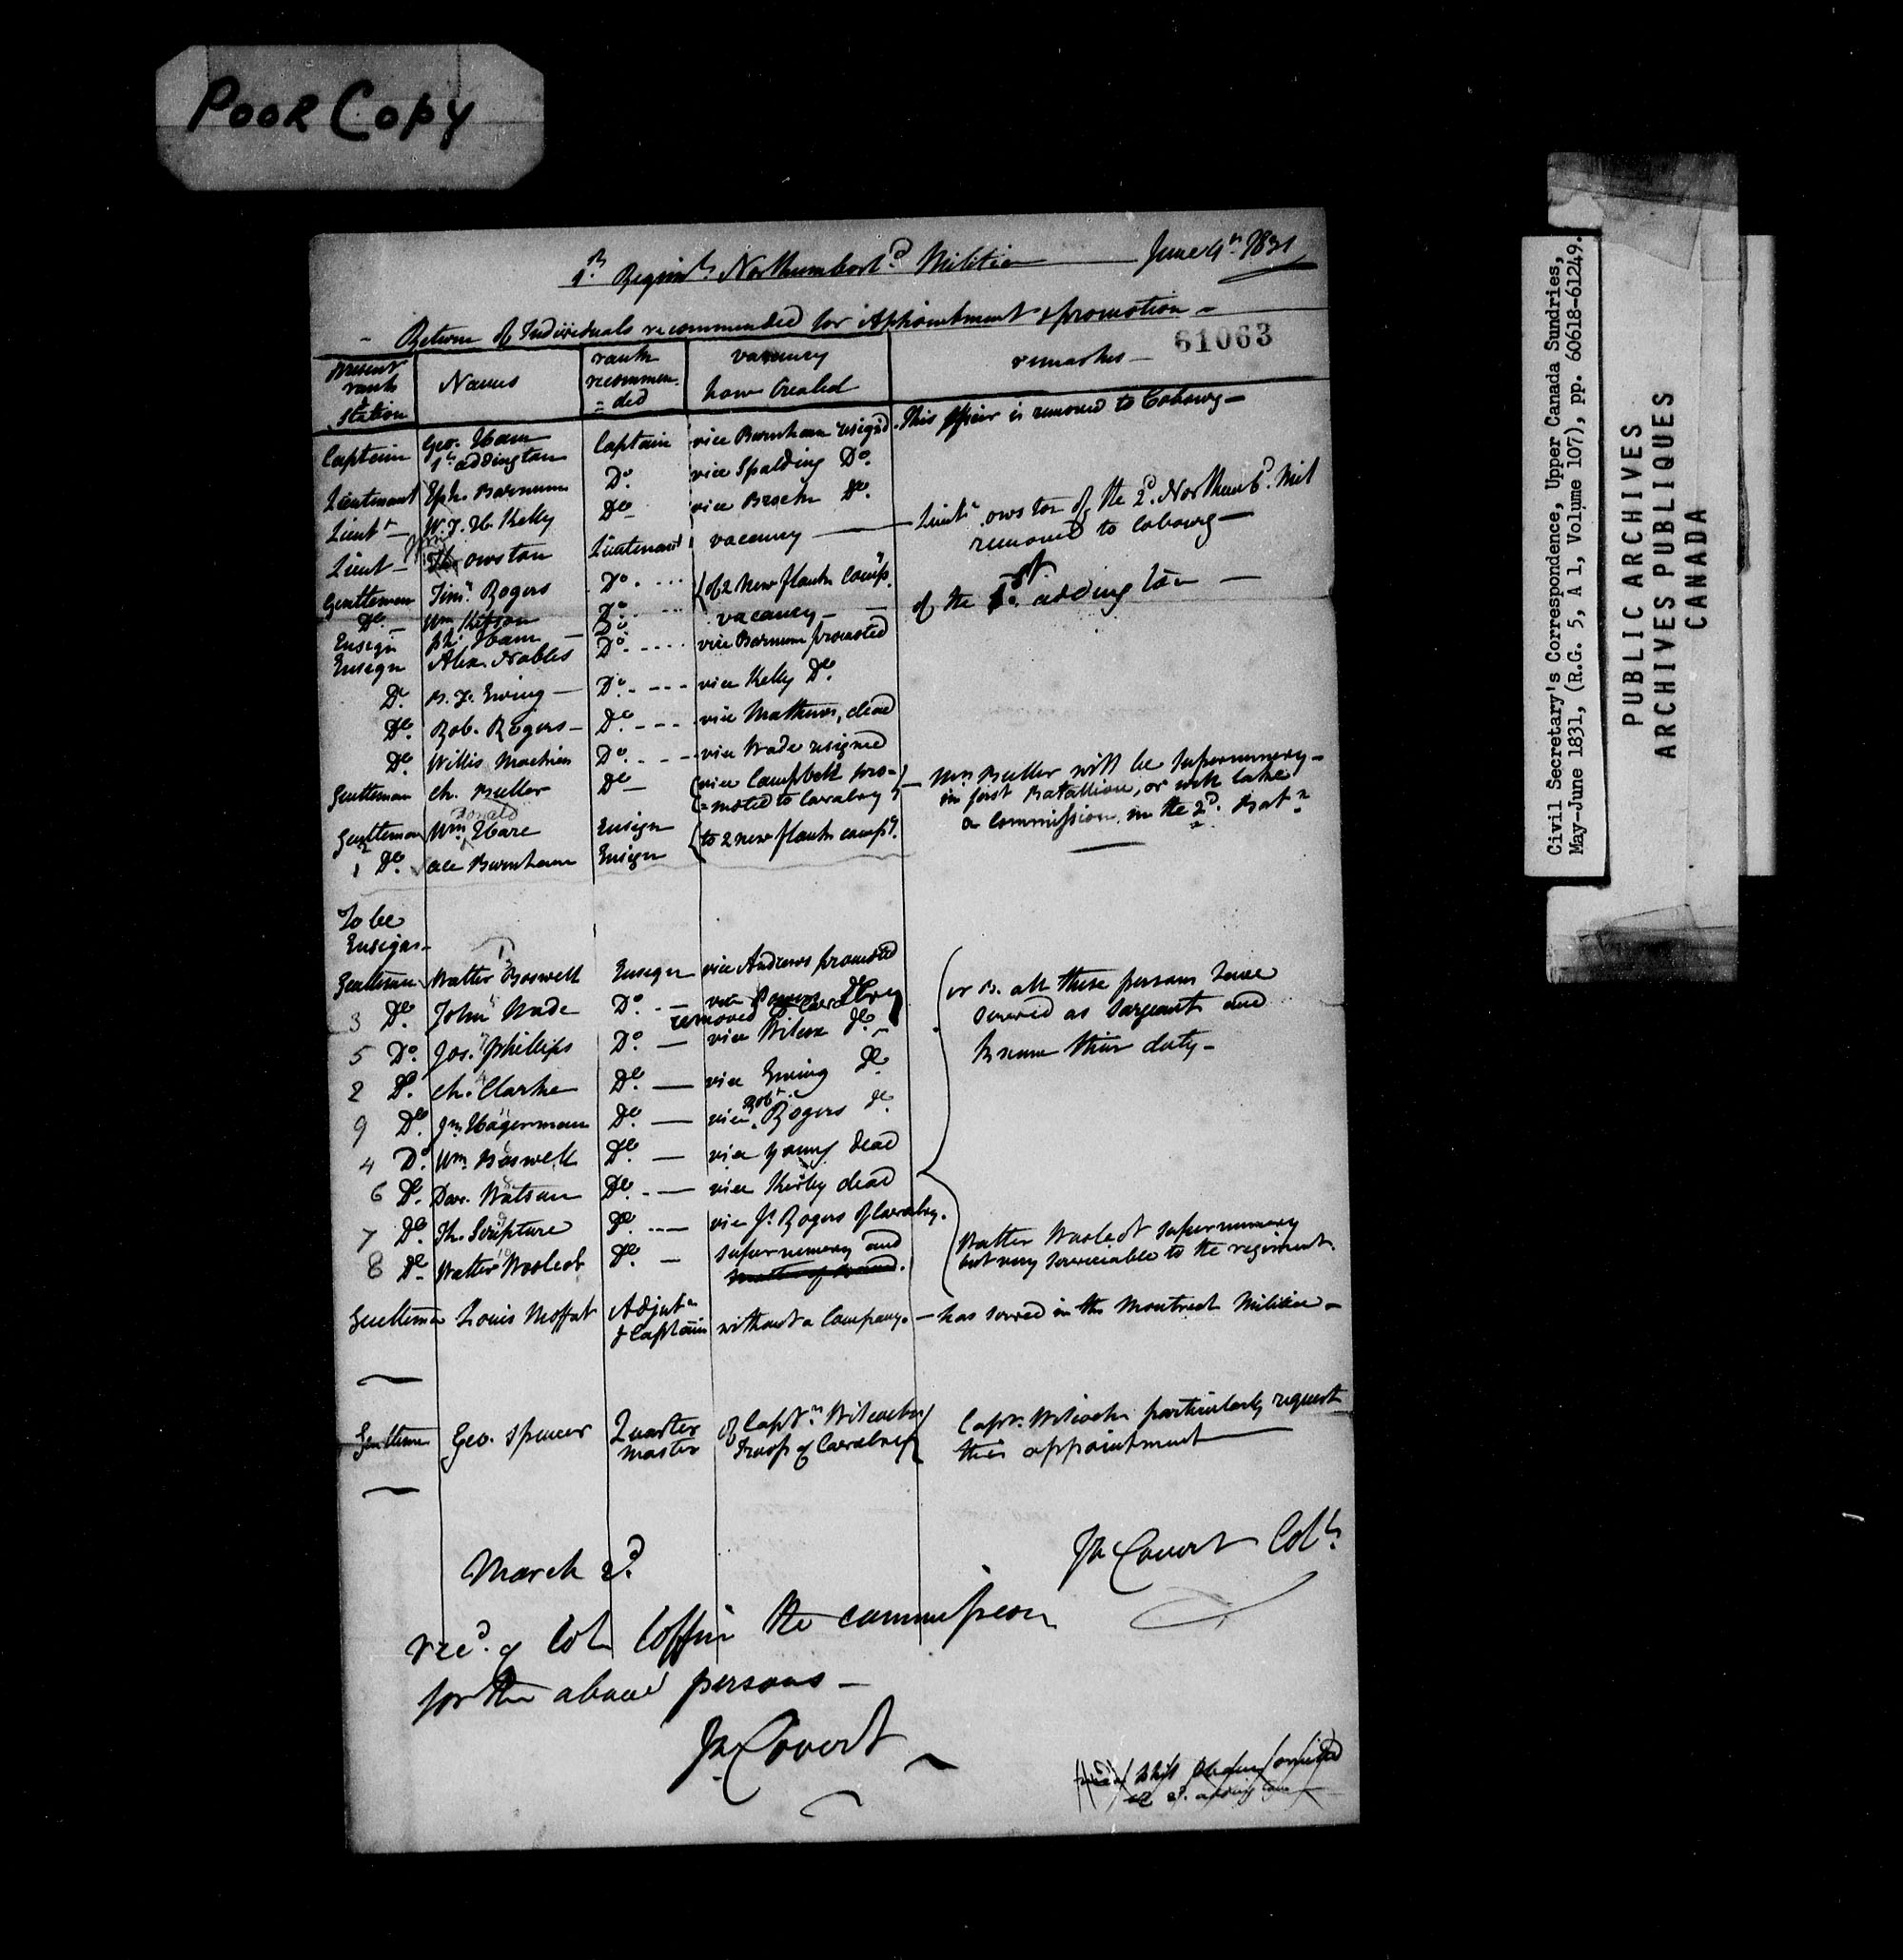 POOR COPY
1st Regimt Northumberld Militia — June 4th 1831
Return of Individuals recommended for Appointment & promotion —
61063
present rank & station | Names | rank recommen=ded | vacancy how created | remarks —
Captain | Geo. Ham 1st addington | Captain | vice Burnham resigd. | This officer is removed to Cobourg —
Lieutenant | Eph. Barnum | Do | vice Spalding Do.
Lieut — | W. Kelly | Do | vice Do.
Lieut — | owston | Lieutenant | vacancy — | Lieut owston of the 2d. Northumbd. Mil removed to Cobourg —
Gentleman | Rogers | Do. | of 2 new flank comps.
Do. | Wm | Do. | vacancy —
Ensign | Ham — | Do | of the 1st. addington —
Ensign | Alex. Nobles | Do. | vice Barnum promoted
Do. | Ewing — | Do. | vice Kelly Do.
Do. | Rob. Rogers — | Do. | vice Mathews, dead
Do. | Willis | Do. | vice Wade resigned
Gentleman | Ch. Butler | Do — | vice Campbell pro=moted to Cavalry | Mr Butler will be supernumery — in first Batallion, or will take a commission in the 2d. Batn.
Gentleman | Donald
Wm Hare | Ensign | to 2 new flank compy.
1 Do. | Burnham | Ensign
To be Ensigns —
Gentleman | Walter Boswell | Ensign | vice Andrews promoted
3 Do. | John Wade | Do. — | vice removed to Cavalry | all these persons have served as sargeant and know their duty —
5 Do. | Jos. Phillips | Do. — | vice Do.
2 Do. | Ch. Clarke | Do. — | vice Ewing Do
9 Do. | Jn. Hagermann | Do. — | vice Robt. Rogers Do.
4 Do. | Wm Boswell | Do. — | vice young dead
6 Do. | Dav. Watson | Do. — | vice dead
7 Do. | Th. Scripture | Do. — | vice Rogers of Cavalry.
8 Do. | Walter | Do. — | supernumery and | Walter supernumery but very serviciable to the regiment.
Gentleman | Louis Moffat | Adjutn & Captain | without a Company. | — has served in the Montreal Militia —
Gentleman | Geo. Spencer | Quarter master | of Captn Troop of Cavalry | Captn. particularly request this appointment
Covert Coll.
March 2d.
recd. of Col Coffin the commission
for the above persons —
Covert
Civil Secretary's Correspondence, Upper Canada Sundries,
May-June 1831, (R.G. 5, A 1, Volume 107), pp. 60618-61249.
PUBLIC ARCHIVES
ARCHIVES PUBLIQUES
CANADA